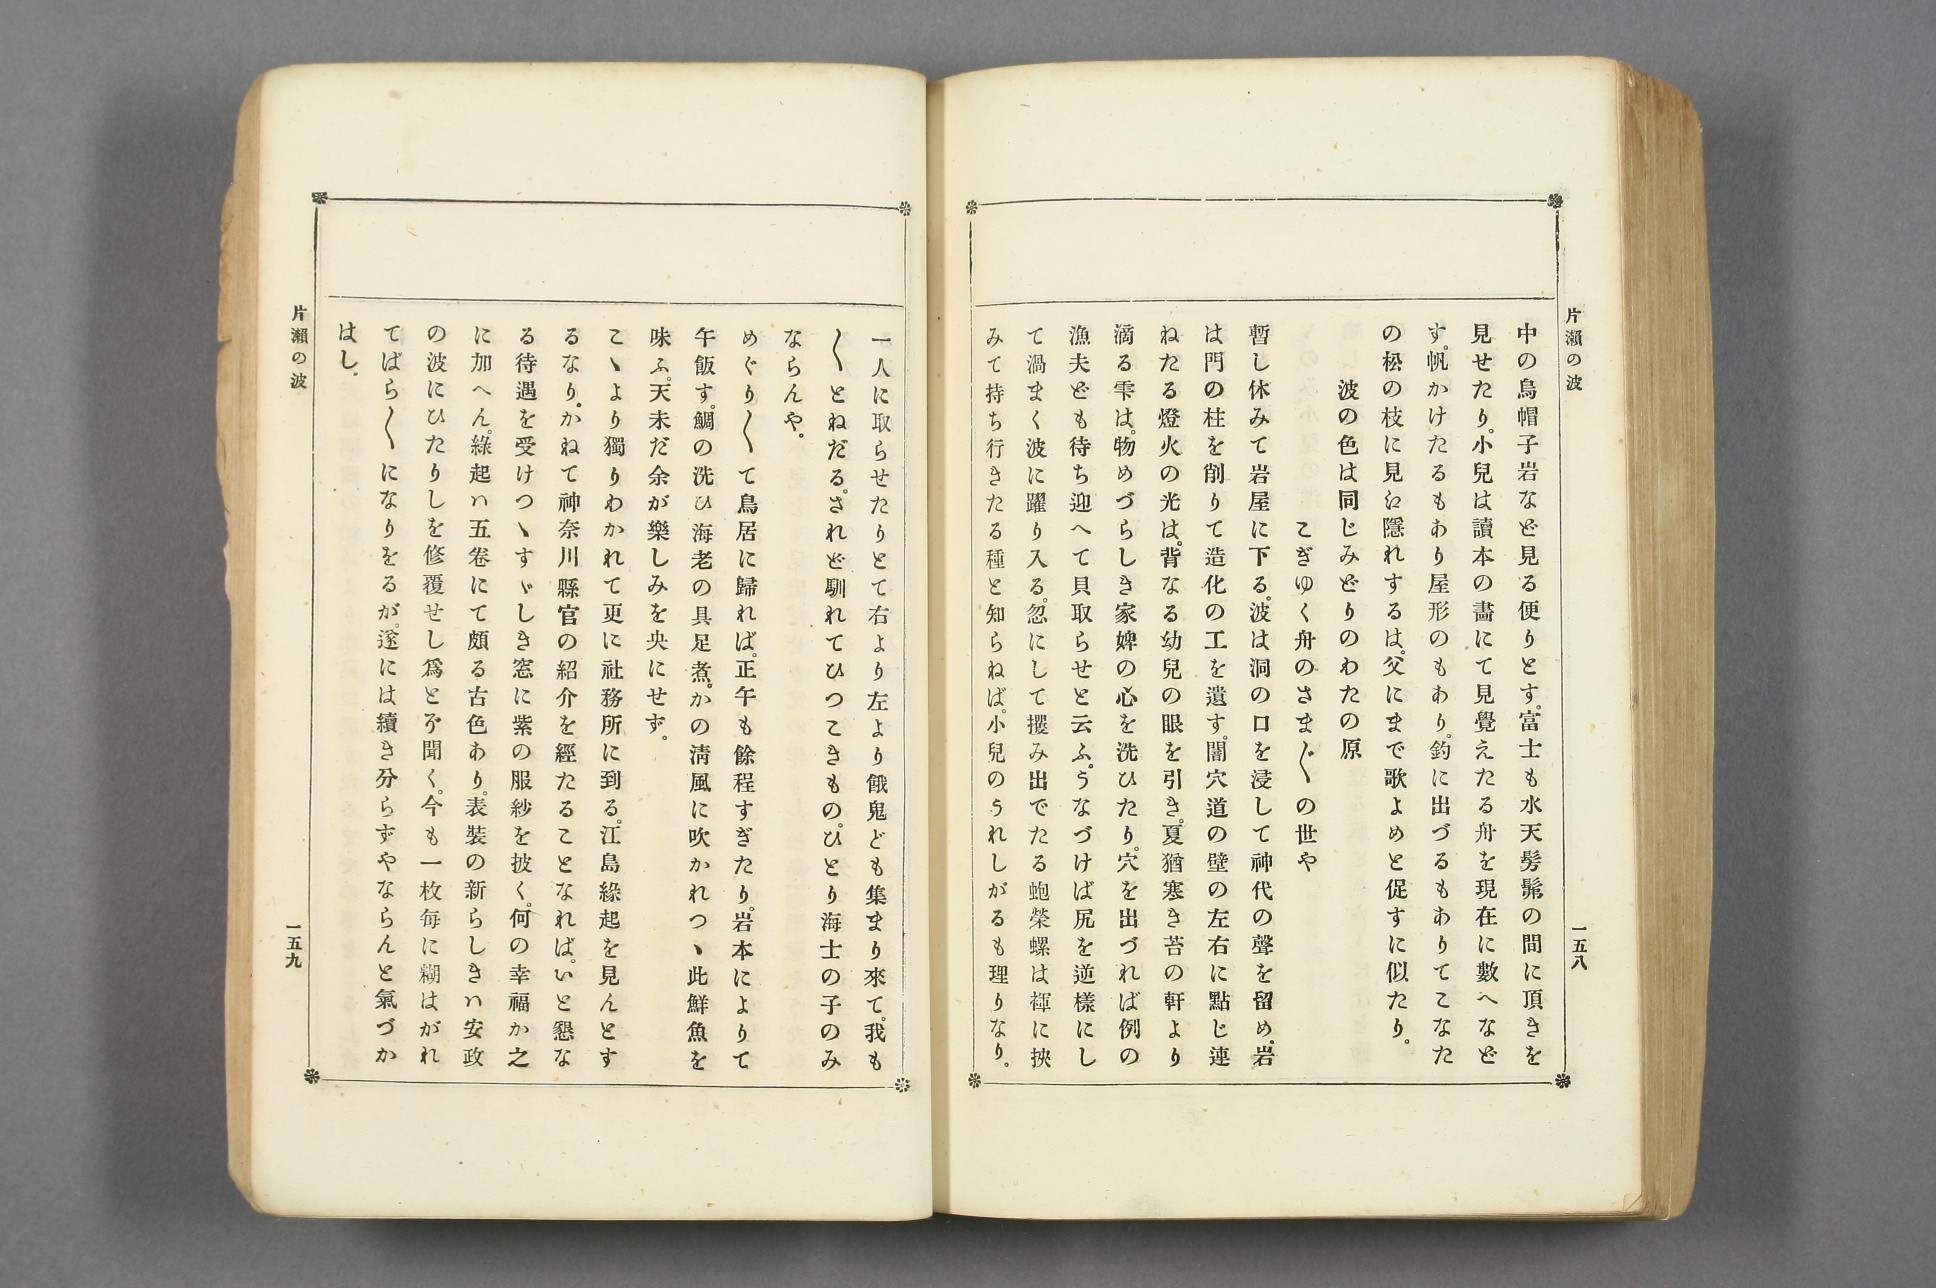 片瀬の波
一五八
中の烏帽子岩など見る便りとす。富士も水天髣髴の間に頂きを
見せたり。小兒は讀本の畵にて見覺えたる舟を現在に數へなど
す。帆かけたるもあり屋形のもあり。釣に出づるもありてこなた
の松の枝に見え隱れするは。父にまで歌よめと促すに似たり。
波の色は同じみどりのわたの原
こぎゆく舟のさま〴〵の世や
暫し休みて岩屋に下る。波は洞の口を浸して神代の聲を留め。岩
は門の柱を削りて造化の工を遺す。闇穴道の壁の左右に點じ連
ねたる燈火の光は。背なる幼兒の眼を引き。夏猶寒き苔の軒より
滴る雫は。物めづらしき家婢の心を洗ひたり。穴を出づれば例の
漁夫ども待ち迎へて貝取らせと云ふ。うなづけば尻を逆樣にし
て渦まく波に躍り入る。忽にして攫み出でたる鮑榮螺は褌に挾
みて持ち行きたる種と知らねば。小兒のうれしがるも理りなり。
一人に取らせたりとて右より左より餓鬼ども集まり來て。我も
〳〵とねだる。されど馴れてひつこきもの。ひとり海士の子のみ
ならんや。
めぐり〳〵て鳥居に歸れば。正午も餘程すぎたり。岩本によりて
午飯す。鯛の洗ひ海老の具足煮。かの淸風に吹かれつヽ此鮮魚を
味ふ。天未だ余が樂しみを央にせず。
こヽより獨りわかれて更に社務所に到る。江島緣起を見んとす
るなり。かねて神奈川縣官の紹介を經たることなれば。いと懇な
る待遇を受けつヽすヾしき窓に紫の服紗を披く。何の幸福か之
に加へん。緣起ハ五卷にて頗る古色あり。表裝の新らしきハ安政
の波にひたりしを修覆せし爲とぞ聞く。今も一枚毎に糊はがれ
てばら〳〵になりをるが。遂には續き分らずやならんと氣づか
はし。
片瀬の波
一五九